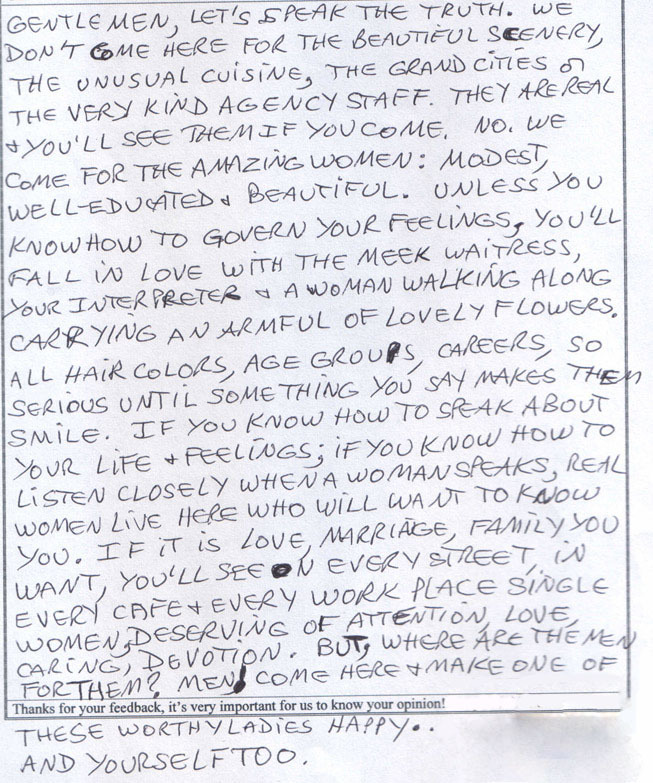 GENTLEMEN, LET'S SPEAK THE TRUTH. WE
DON'T COME HERE FOR THE BEAUTIFUL SCENERY,
THE UNUSUAL CUISINE, THE GRAND CITIES OR
THE VERY KIND AGENCY STAFF. THEY ARE REAL
& YOU'LL SEE THEM IF YOU COME. NO. WE
COME FOR THE AMAZING WOMEN: MODEST,
WELL-EDUCATED & BEAUTIFUL. UNLESS YOU
KNOW HOW TO GOVERN YOUR FEELINGS, YOU'LL
FALL IN LOVE WITH THE MEEK WAITRESS,
YOUR INTERPRETER & A WOMAN WALKING ALONG
CARRYING AN ARMFUL OF LOVELY FLOWERS.
ALL HAIR COLORS, AGE GROUPS, CAREERS, SO
SERIOUS UNTIL SOMETHING YOU SAY MAKES THEM
SMILE. IF YOU KNOW HOW TO SPEAK ABOUT
YOUR LIFE & FEELINGS; IF YOU KNOW HOW TO
LISTEN CLOSELY WHEN A WOMAN SPEAKS, REAL
WOMEN LIVE HERE WHO WILL WANT TO KNOW
YOU. IF IT IS LOVE, MARRIAGE, FAMILY YOU
WANT, YOU'LL SEE ON EVERY STREET, IN
EVERY CAFE & EVERY WORK PLACE SINGLE
WOMEN, DESERVING OF ATTENTION, LOVE,
CARING, DEVOTION. BUT, WHERE ARE THE MEN
FOR THEM? MEN! COME HERE & MAKE ONE OF
Thanks for your feedback, it's very important for us to know your opinion!
THESE WORTHY LADIES HAPPY..
AND YOURSELF TOO.